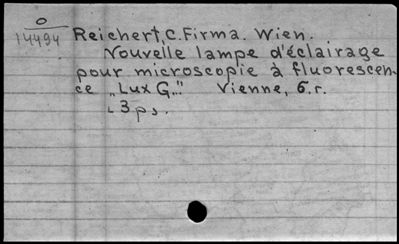 O
14494
Reichert, C. Firma. Wien.
Nouvelle lampe d'éclairage
pour microscopie à fluorescen-
ce „Lux G." Vienne, б.г.
3 p.